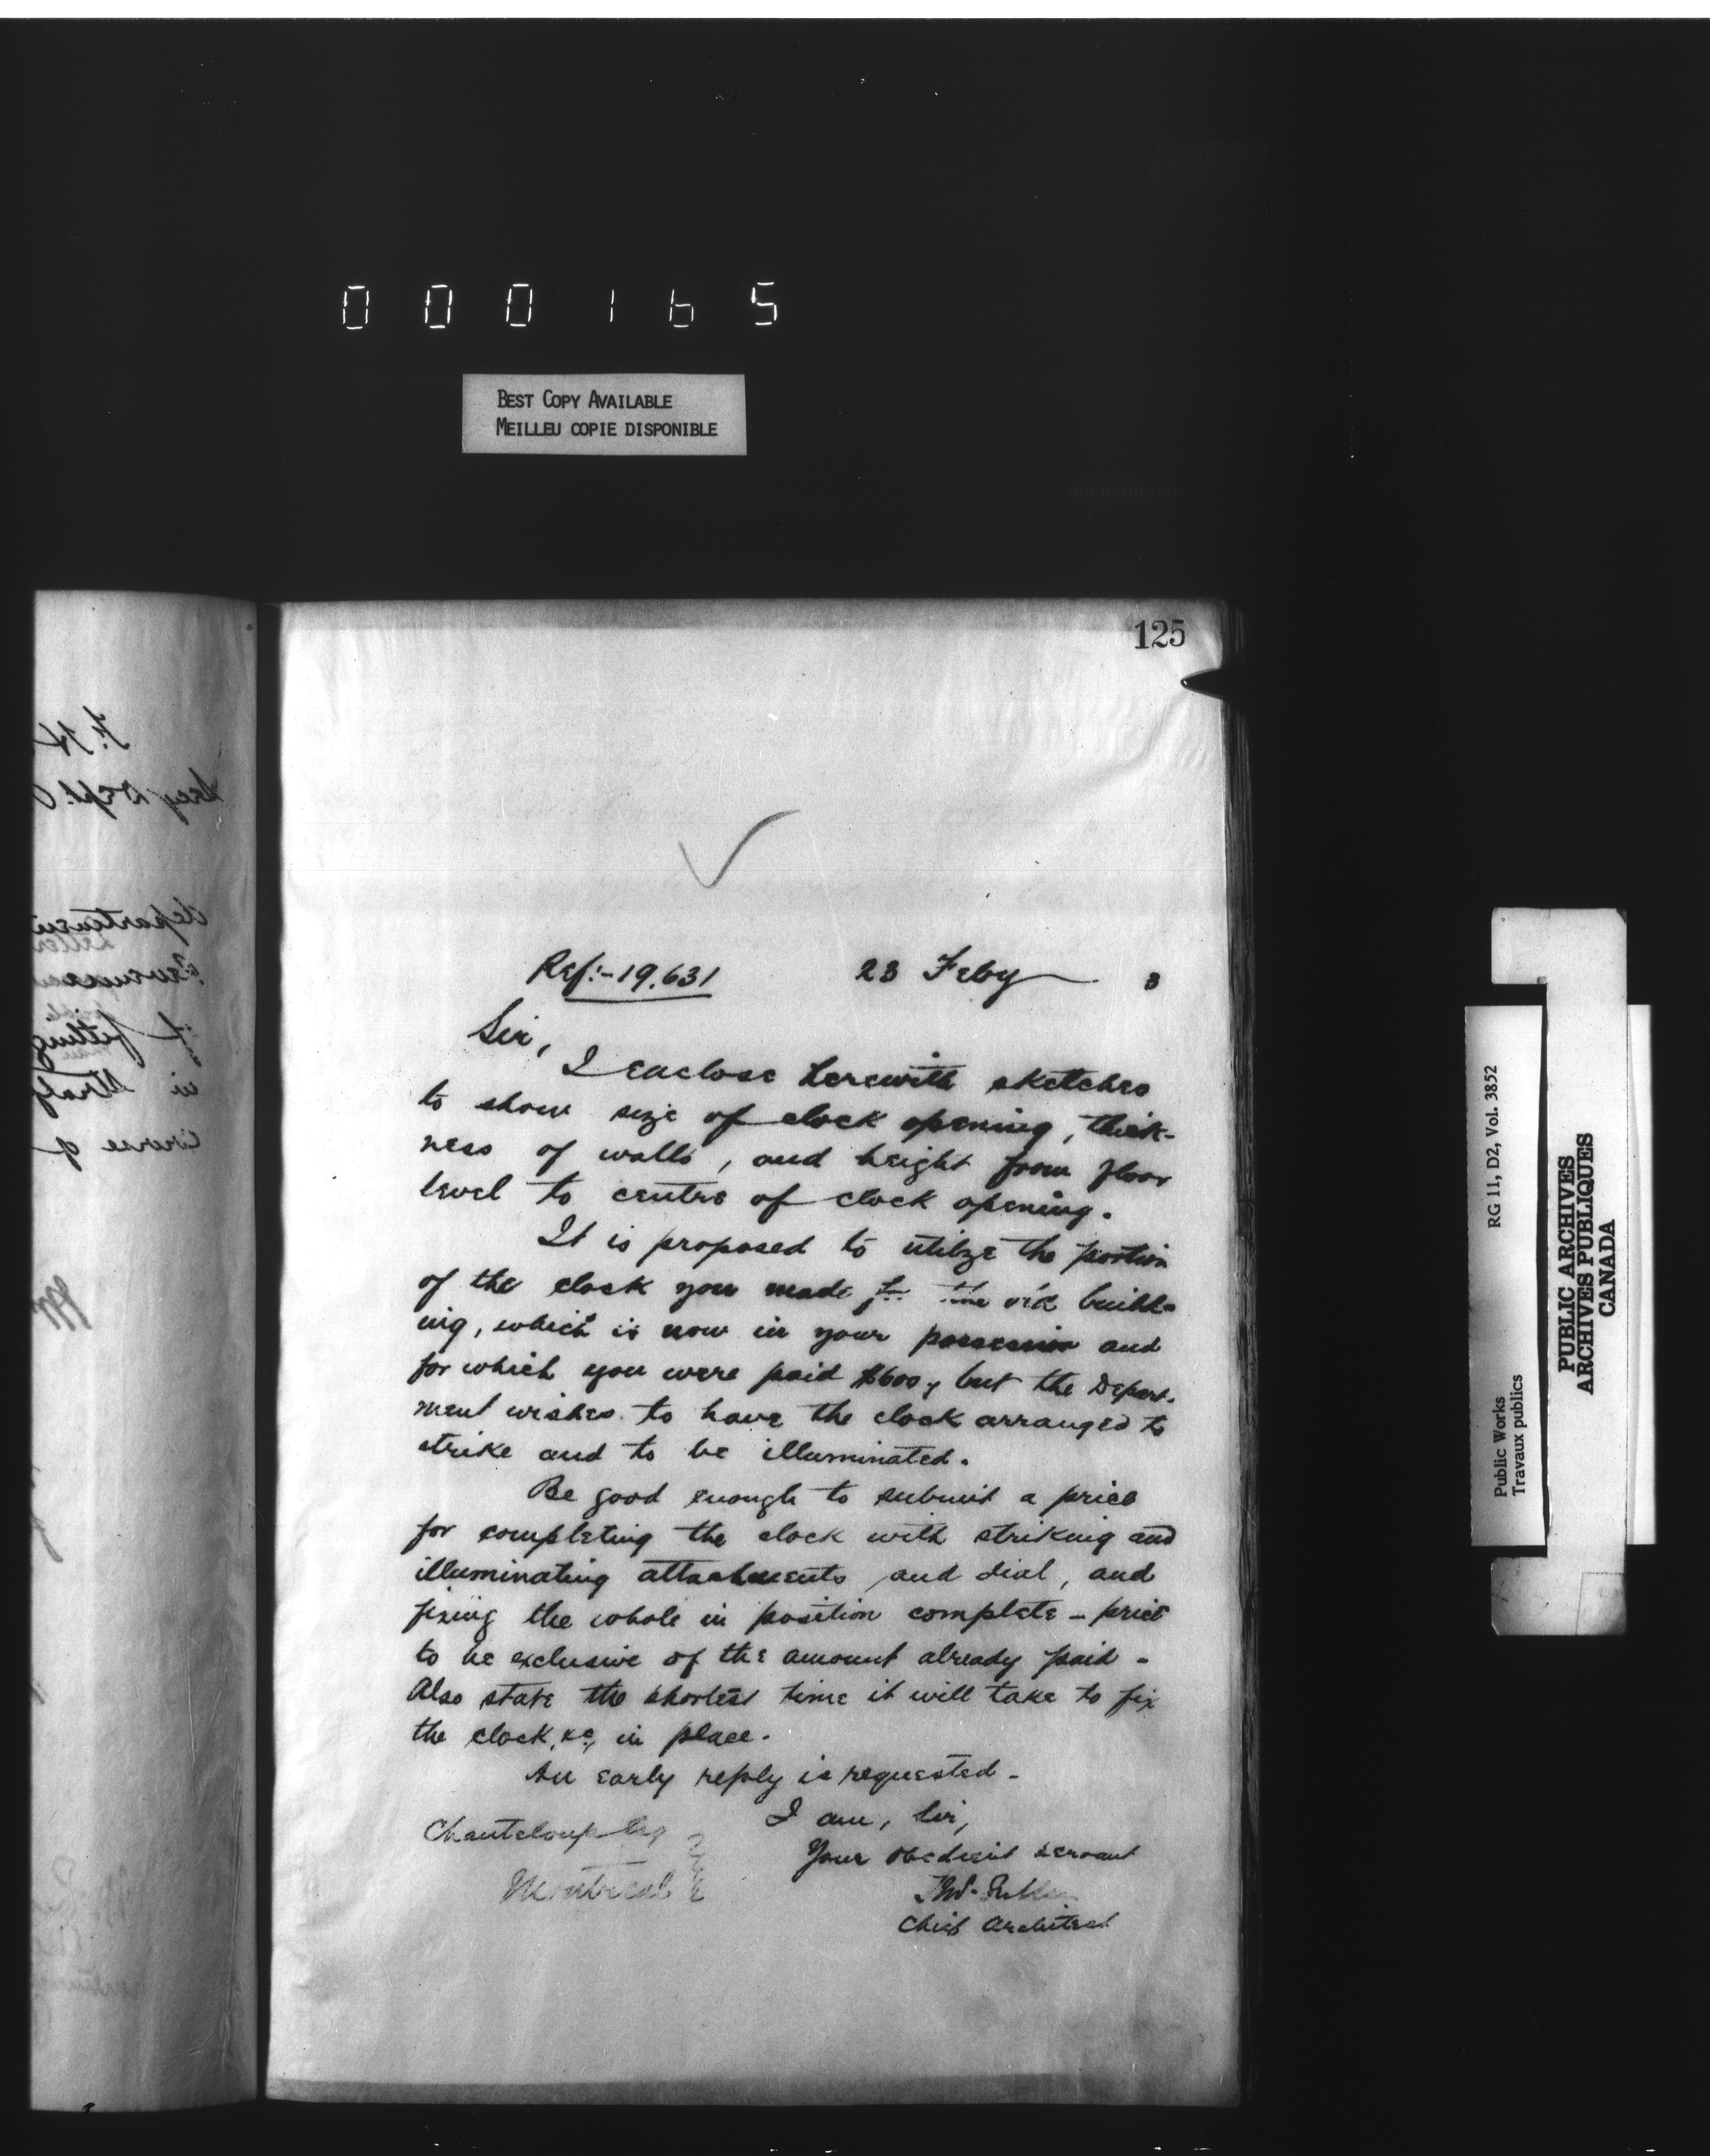 000165
BEST COPY AVAILABLE
MEILLEU COPIE DISPONIBLE
125
Ref:- 19.631 23 Feby 3
Sir,
I enclose herewith sketches
to show size of clock opening, thick-
ness of walls, and height from floor
level to centre of clock opening.
It is proposed to utilize the portion
of the clock you made for the old build-
ing, which is now in your possession and
for which you were paid $600, but the Depart-
ment wishes to have the clock arranged to
strike and to be illuminated.
Be good enough to submit a price
for completing the clock with striking and
illuminating attachments and dial, and
fixing the whole in position complete - price
to be exclusive of the amount already paid -
Also state the shortest time it will take to fix
the clock, &c, in place.
An early reply is requested -
I am, Sir,
Your obedient servant
Thos. Fuller
Chief Architect
Chanteloup Esq
Montreal
RG 11, D2, Vol. 3852
Public Works
Travaux publics
PUBLIC ARCHIVES
ARCHIVES PUBLIQUES
CANADA